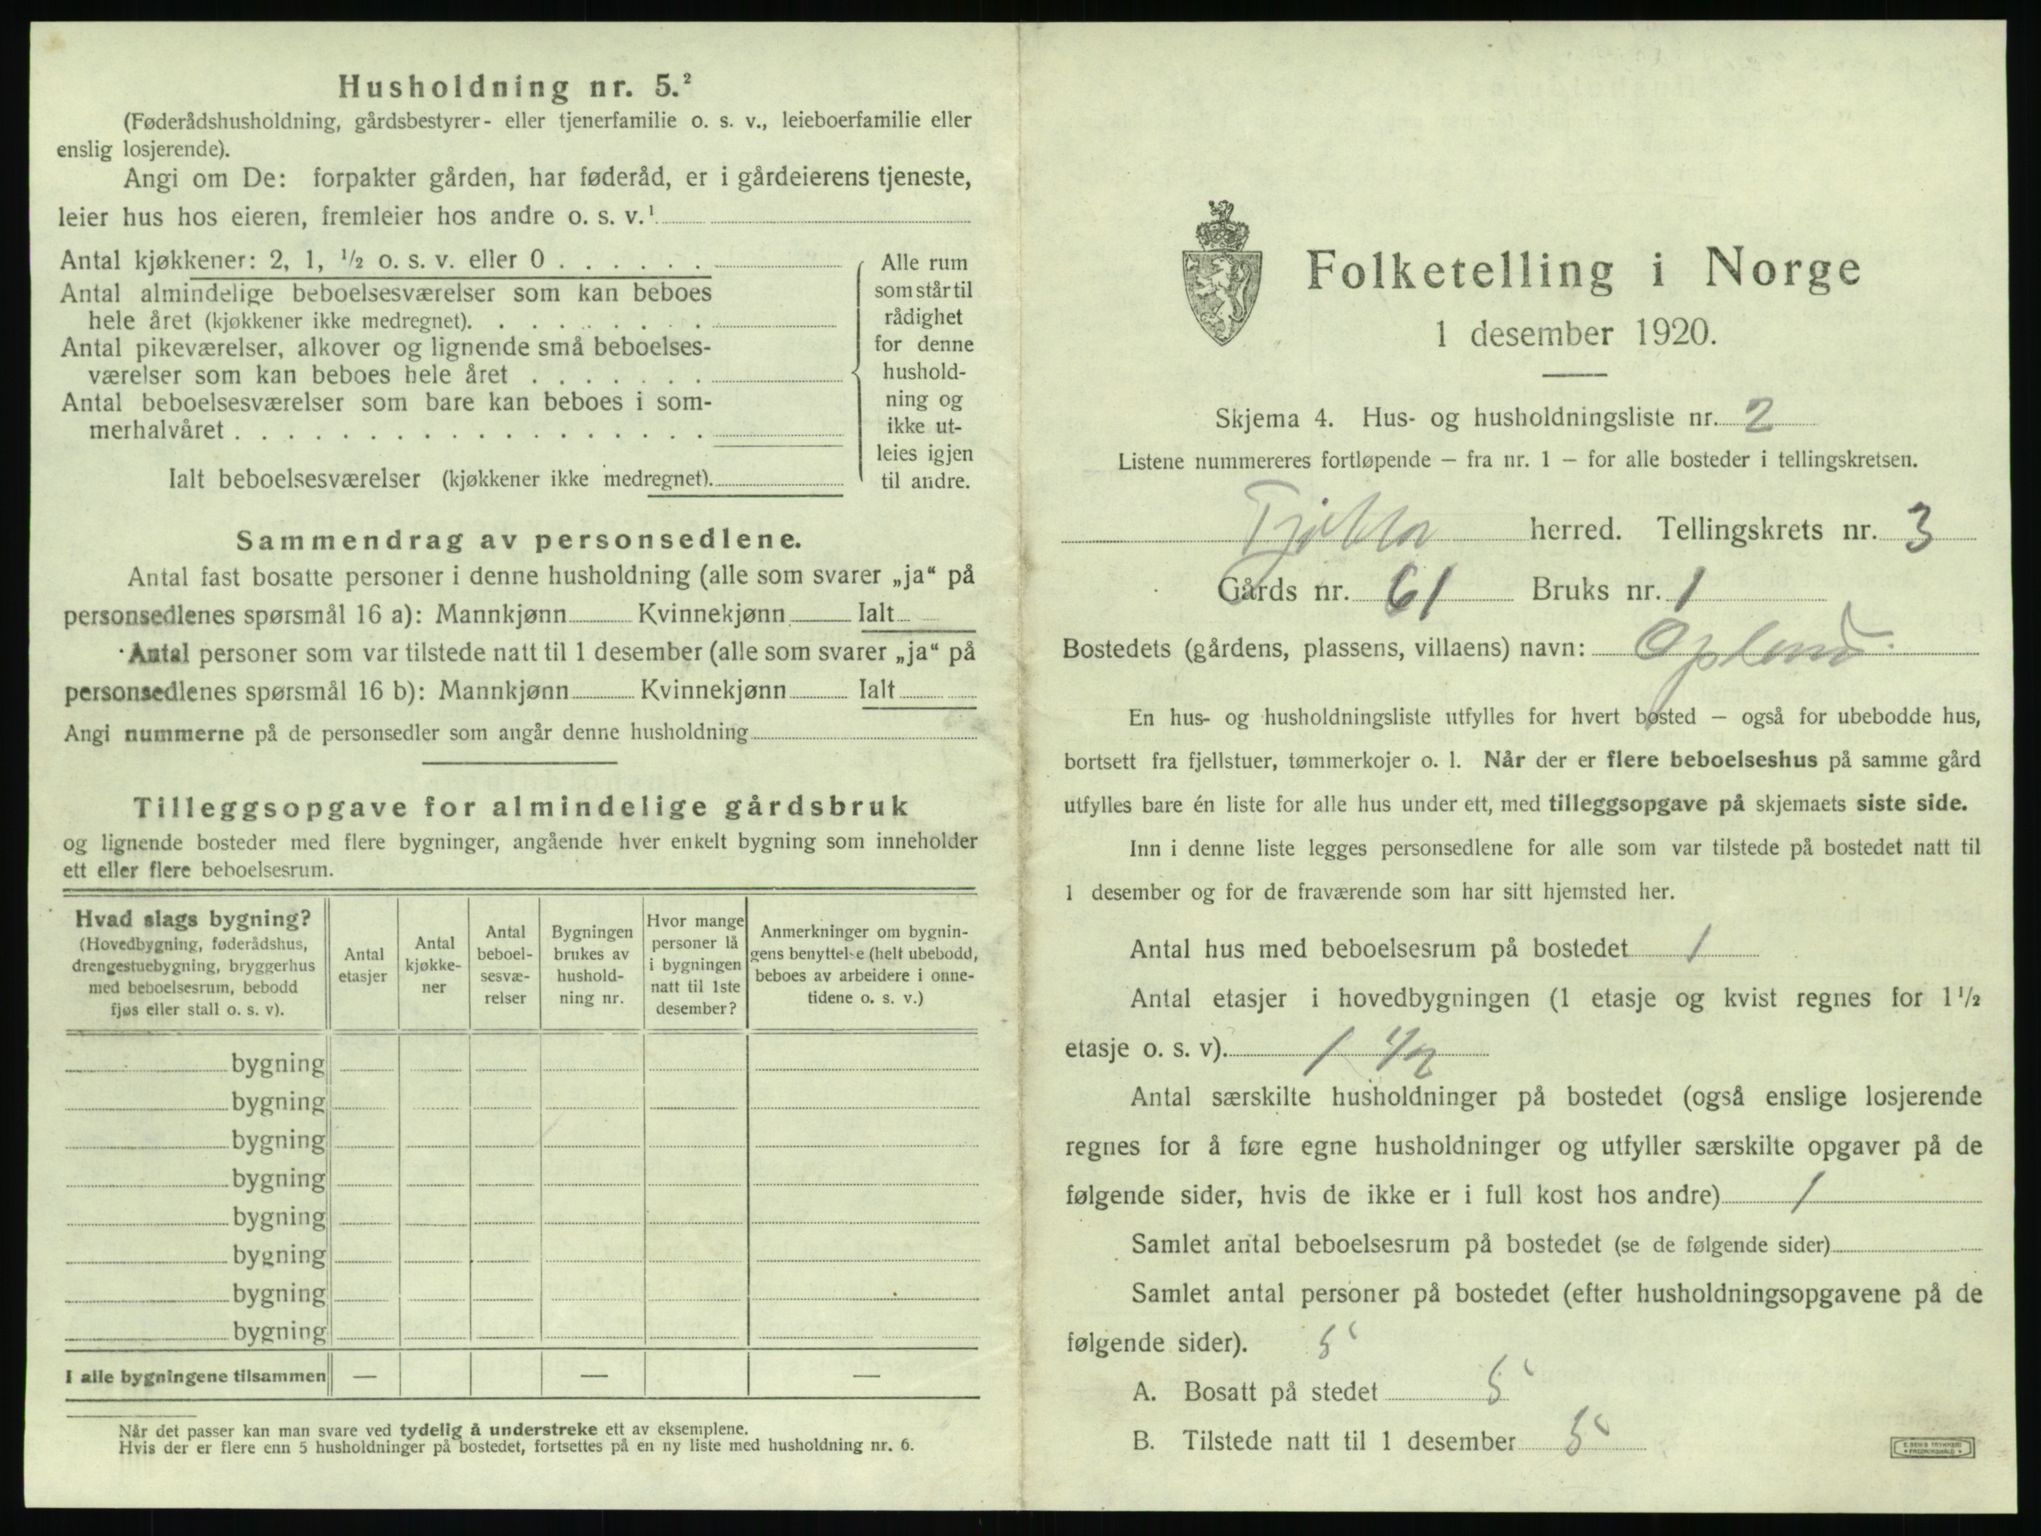 Husholdning nr. 5.²
(Føderådshusholdning, gårdsbestyrer- eller tjenerfamilie o. s. v., leieboerfamilie eller
enslig losjerende).
Angi om De: forpakter gården, har føderåd, er i gårdeierens tjeneste,
leier hus hos eieren, fremleier hos andre o. s. v.¹
Antal kjøkkener: 2, 1, ½ o. s. v. eller 0 . . . . . .
Antal almindelige beboelsesværelser som kan beboes
hele året (kjøkkener ikke medregnet). . . . . . . . .
Antal pikeværelser, alkover og lignende små beboelses-
værelser som kan beboes hele året . . . . . . .
Antal beboelsesværelser som bare kan beboes i som-
merhalvåret . . . . . . . . . . . . . . . . . .
Ialt beboelsesværelser (kjøkkener ikke medregnet).
Alle rum
som står til
rådighet
for denne
hushold-
ning og
ikke ut-
leies igjen
til andre.
Sammendrag av personsedlene.
Antal fast bosatte personer i denne husholdning (alle som svarer „ja“ på
personsedlenes spørsmål 16 a): Mannkjønn Kvinnekjønn Ialt
Antal personer som var tilstede natt til 1 desember (alle som svarer „ja“ på
personsedlenes spørsmål 16 b): Mannkjønn Kvinnekjønn Ialt
Angi nummerne på de personsedler som angår denne husholdning
Tilleggsopgave for almindelige gårdsbruk
og lignende bosteder med flere bygninger, angående hver enkelt bygning som inneholder
ett eller flere beboelsesrum.
Hvad slags bygning?
(Hovedbygning, føderådshus,
drengestuebygning, bryggerhus
med beboelsesrum, bebodd
fjøs eller stall o. s. v).
Antal
etasjer
Antal
kjøkke-
ner
Antal
beboel-
sesvæ-
relser
Bygningen
brukes av
hushold-
ning nr.
Hvor mange
personer lå
i bygningen
natt til 1ste
desember?
Anmerkninger om bygnin-
gens benyttelse (helt ubebodd,
beboes av arbeidere i onne-
tidene o. s. v.)
bygning
bygning
bygning
bygning
bygning
bygning
bygning
bygning
I alle bygningene tilsammen — — —
Når det passer kan man svare ved tydelig å understreke ett av eksemplene.
Hvis der er flere enn 5 husholdninger på bostedet, fortsettes på en ny liste med husholdning nr. 6.
Folketelling i Norge
1 desember 1920.
Skjema 4. Hus- og husholdningsliste nr. 2
Listene nummereres fortløpende — fra nr. 1 — for alle bosteder i tellingskretsen.
herred. Tellingskrets nr. 3
Gårds nr. 61 Bruks nr. 1
Bostedets (gårdens, plassens, villaens) navn: Opland
En hus- og husholdningsliste utfylles for hvert bosted — også for ubebodde hus,
bortsett fra fjellstuer, tømmerkojer o. l. Når der er flere beboelseshus på samme gård
utfylles bare én liste for alle hus under ett, med tilleggsopgave på skjemaets siste side.
Inn i denne liste legges personsedlene for alle som var tilstede på bostedet natt til
1 desember og for de fraværende som har sitt hjemsted her.
Antal hus med beboelsesrum på bostedet 1
Antal etasjer i hovedbygningen (1 etasje og kvist regnes for 1 ½
etasje o. s. v). 1 ½
Antal særskilte husholdninger på bostedet (også enslige losjerende
regnes for å føre egne husholdninger og utfyller særskilte opgaver på de
følgende sider, hvis de ikke er i full kost hos andre) 1
Samlet antal beboelsesrum på bostedet (se de følgende sider)
Samlet antal personer på bostedet (efter husholdningsopgavene på de
følgende sider). 5
A. Bosatt på stedet 5
B. Tilstede natt til 1 desember 5